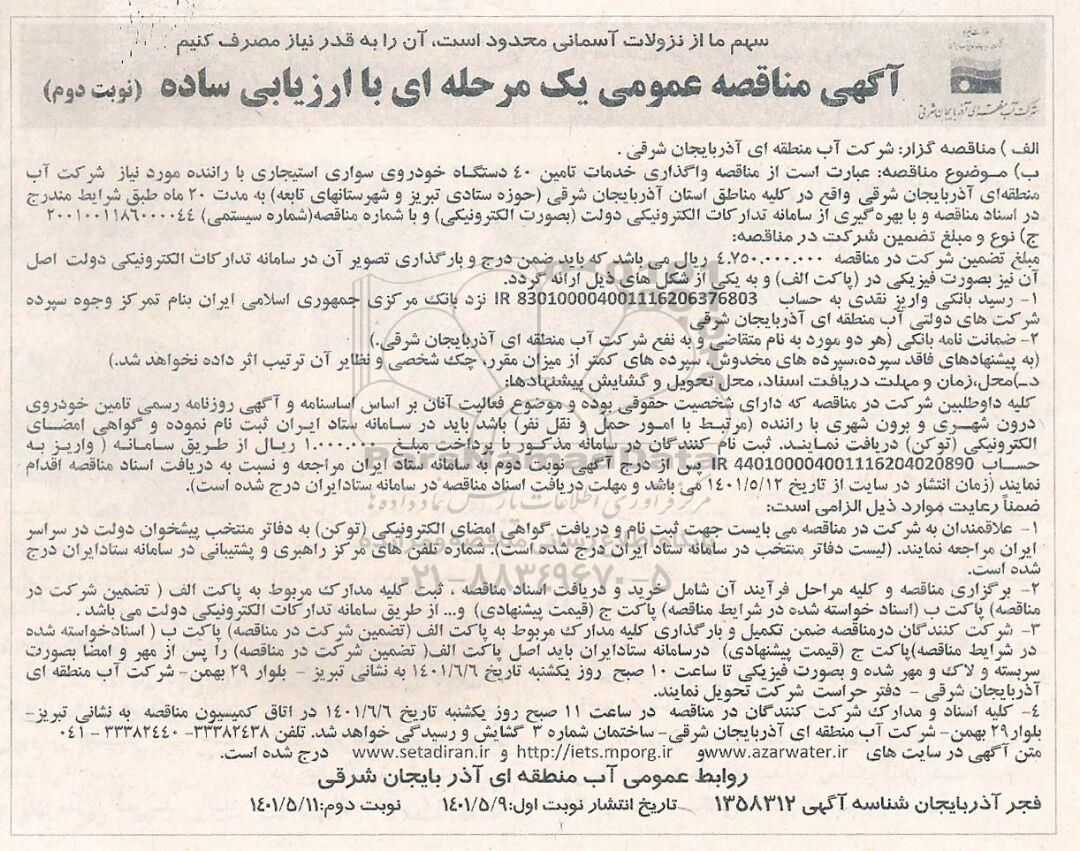 سهم ما از نزولات آسمانی محدود است، آن را به قدر نیاز مصرف کنیم
آگهی مناقصه عمومی یک مرحله ای با ارزیابی ساده (نوبت دوم)
شرکت آب منطقه ای آذربایجان شرقی
الف ) مناقصه گزار: شرکت آب منطقه ای آذربایجان شرقی .
ب) موضوع مناقصه: عبارت است از مناقصه واگذاری خدمات تامین ۴۰ دستگاه خودروی سواری استیجاری با راننده مورد نیاز شرکت آب
منطقه‌ای آذربایجان شرقی واقع در کلیه مناطق استان آذربایجان شرقی (حوزه ستادی تبریز و شهرستانهای تابعه) به مدت ۲۰ ماه طبق شرایط مندرج
در اسناد مناقصه و با بهره گیری از سامانه تدارکات الکترونیکی دولت (بصورت الکترونیکی) و با شماره مناقصه(شماره سیستمی) ۲۰۰۱۰۰۱۱۸۶۰۰۰۰۴۴
ج) نوع و مبلغ تضمین شرکت در مناقصه:
مبلغ تضمین شرکت در مناقصه ۴.۷۵۰.۰۰۰.۰۰۰ ریال می باشد که باید ضمن درج و بارگذاری تصویر آن در سامانه تدارکات الکترونیکی دولت اصل
آن نیز بصورت فیزیکی در (پاکت الف) و به یکی از شکل های ذیل ارائه گردد.
۱- رسید بانکی واریز نقدی به حساب IR 830100004001116206376803 نزد بانک مرکزی جمهوری اسلامی ایران بنام تمرکز وجوه سپرده
شرکت های دولتی آب منطقه ای آذربایجان شرقی
۲- ضمانت نامه بانکی (هر دو مورد به نام متقاضی و به نفع شرکت آب منطقه ای آذربایجان شرقی.)
(به پیشنهادهای فاقد سپرده،سپرده های مخدوش، سپرده های کمتر از میزان مقرر، چک شخصی و نظایر آن ترتیب اثر داده نخواهد شد.)
د-)محل،زمان و مهلت دریافت اسناد، محل تحویل و گشایش پیشنهادها:
کلیه داوطلبین شرکت در مناقصه که دارای شخصیت حقوقی بوده و موضوع فعالیت آنان بر اساس اساسنامه و آگهی روزنامه رسمی تامین خودروی
درون شهری و برون شهری با راننده (مرتبط با امور حمل و نقل نفر) باشد، باید در سامانه ستاد ایران ثبت نام نموده و گواهی امضای
الکترونیکی (توکن) دریافت نمایند. ثبت نام کنندگان در سامانه مذکور با پرداخت مبلغ ۱.۰۰۰.۰۰۰ ریال از طریق سامانه ( واریز به
حساب IR 440100004001116204020890 پس از درج آگهی نوبت دوم به سامانه ستاد ایران مراجعه و نسبت به دریافت اسناد مناقصه اقدام
نمایند (زمان انتشار در سایت از تاریخ ۱۴۰۱/۵/۱۲ می باشد و مهلت دریافت اسناد مناقصه در سامانه ستادایران درج شده است).
ضمناً رعایت موارد ذیل الزامی است:
۱- علاقمندان به شرکت در مناقصه می بایست جهت ثبت نام و دریافت گواهی امضای الکترونیکی (توکن) به دفاتر منتخب پیشخوان دولت در سراسر
ایران مراجعه نمایند. (لیست دفاتر منتخب در سامانه ستاد ایران درج شده است). شماره تلفن های مرکز راهبری و پشتیبانی در سامانه ستادایران درج
شده است.
۲- برگزاری مناقصه و کلیه مراحل فرآیند آن شامل خرید و دریافت اسناد مناقصه ، ثبت کلیه مدارک مربوط به پاکت الف ( تضمین شرکت در
مناقصه) پاکت ب (اسناد خواسته شده در شرایط مناقصه) پاکت ج (قیمت پیشنهادی) و... از طریق سامانه تدارکات الکترونیکی دولت می باشد .
۳- شرکت کنندگان درمناقصه ضمن تکمیل و بارگذاری کلیه مدارک مربوط به پاکت الف (تضمین شرکت در مناقصه) پاکت ب ( اسنادخواسته شده
در شرایط مناقصه)پاکت ج (قیمت پیشنهادی) درسامانه ستادایران باید اصل پاکت الف( تضمین شرکت در مناقصه) را پس از مهر و امضا بصورت
سربسته و لاک و مهر شده و بصورت فیزیکی تا ساعت ۱۰ صبح روز یکشنبه تاریخ ۱۴۰۱/۶/۶ به نشانی تبریز – بلوار ۲۹ بهمن- شرکت آب منطقه ای
آذربایجان شرقی - دفتر حراست شرکت تحویل نمایند.
۴- کلیه اسناد و مدارک شرکت کنندگان در مناقصه در ساعت ۱۱ صبح روز یکشنبه تاریخ ۱۴۰۱/۶/۶ در اتاق کمیسیون مناقصه به نشانی تبریز-
بلوار۲۹ بهمن- شرکت آب منطقه ای آذربایجان شرقی- ساختمان شماره ۳ گشایش و رسیدگی خواهد شد. تلفن ۳۳۳۸۲۴۳۸- ۳۳۳۸۲۴۴۰ - ۰۴۱
متن آگهی در سایت های www.azarwater.ir و http://iets.mporg.ir و www.setadiran.ir درج شده است.
روابط عمومی آب منطقه ای آذر بایجان شرقی
فجر آذربایجان شناسه آگهی ۱۳۵۸۳۱۲ تاریخ انتشار نوبت اول:۱۴۰۱/۵/۹ نوبت دوم:۱۴۰۱/۵/۱۱
ParsNamadData
مرکز فرآوری اطلاعات پارس نماد داده ها
پایگاه اطلاع رسانی مناقصه و مزایده
۰۲۱-۸۸۳۴۹۶۷۰-۵